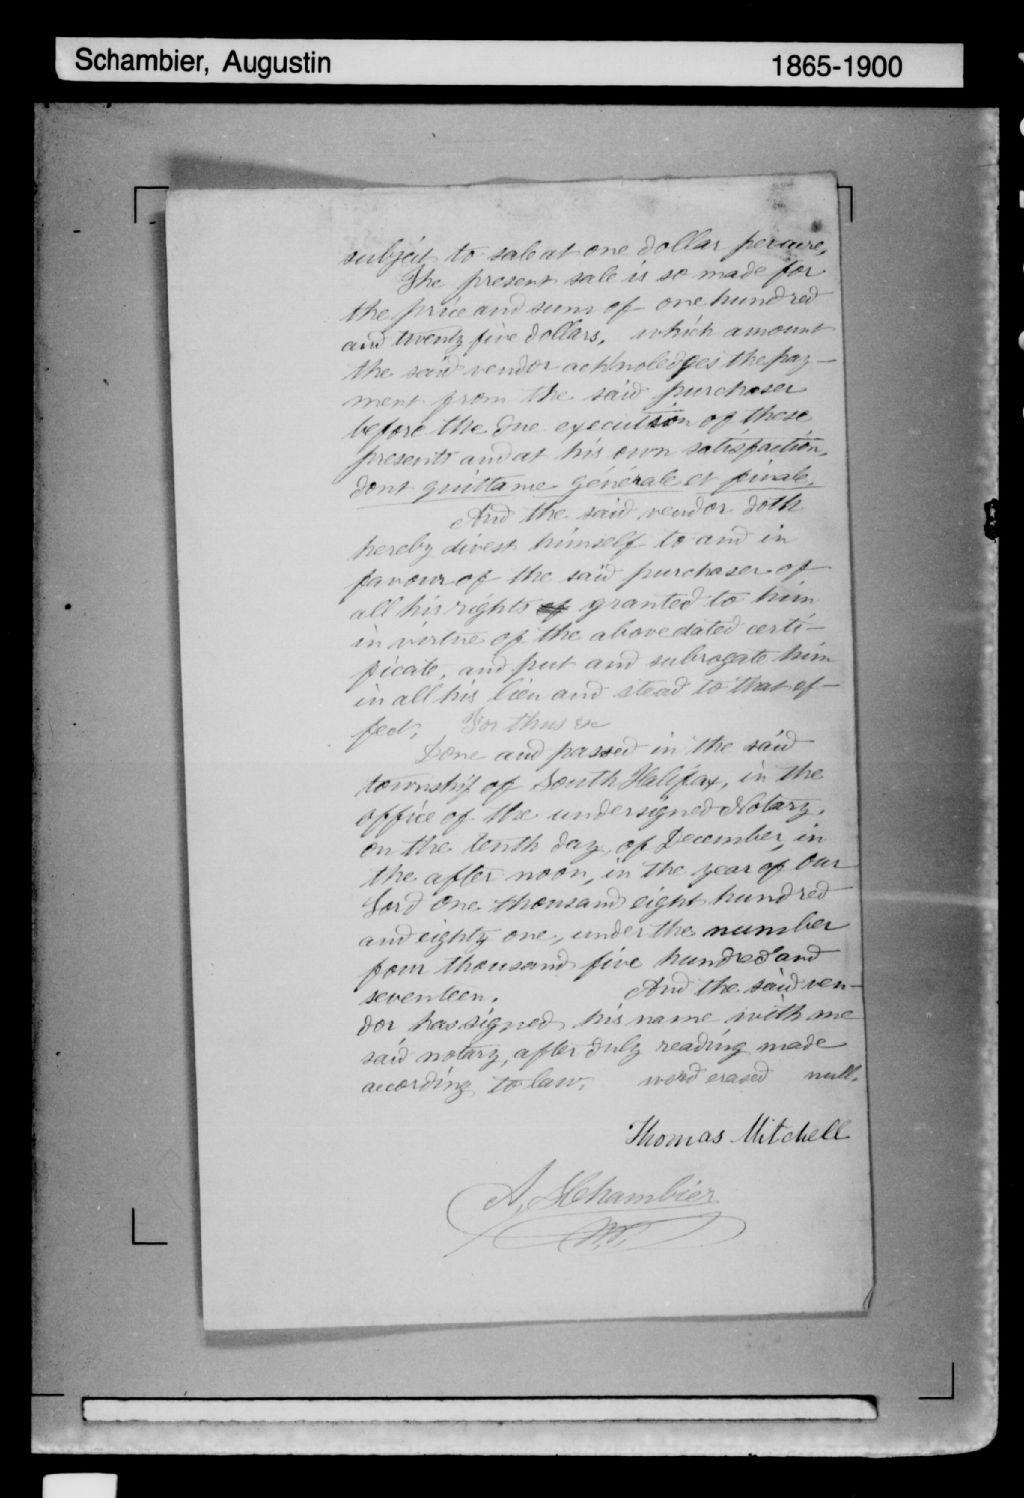 Schambier, Augustin 1865-1900
subject to sale at one dollar per acre,
The present sale is so made for
the price and sum of one hundred
and twenty five dollars, which amount
the said vendor acknoledges the pay-
ment from the said purchaser
before the due execution of these
presents and at his own satisfaction,
dont quittance générale et finale.
And the said vendor doth
hereby divest himself to and in
favour of the said purchaser of
all his rights of granted to him
in virtue of the above dated certi-
ficate, and put and subrogate him
in all his lieu and stead to that ef-
fect, For thus &c
Done and passed in the said
township of South Halifax, in the
office of the undersigned Notary,
on the tenth day of December, in
the after noon, in the year of Our
Lord one thousand eight hundred
and eighty one, under the number
four thousand five hundred and
seventeen. And the said ven-
dor has signed his name with me
said notary, after duly reading made
according to law, word erased null.
Thomas Mitchell
A. Schambier
N.P.